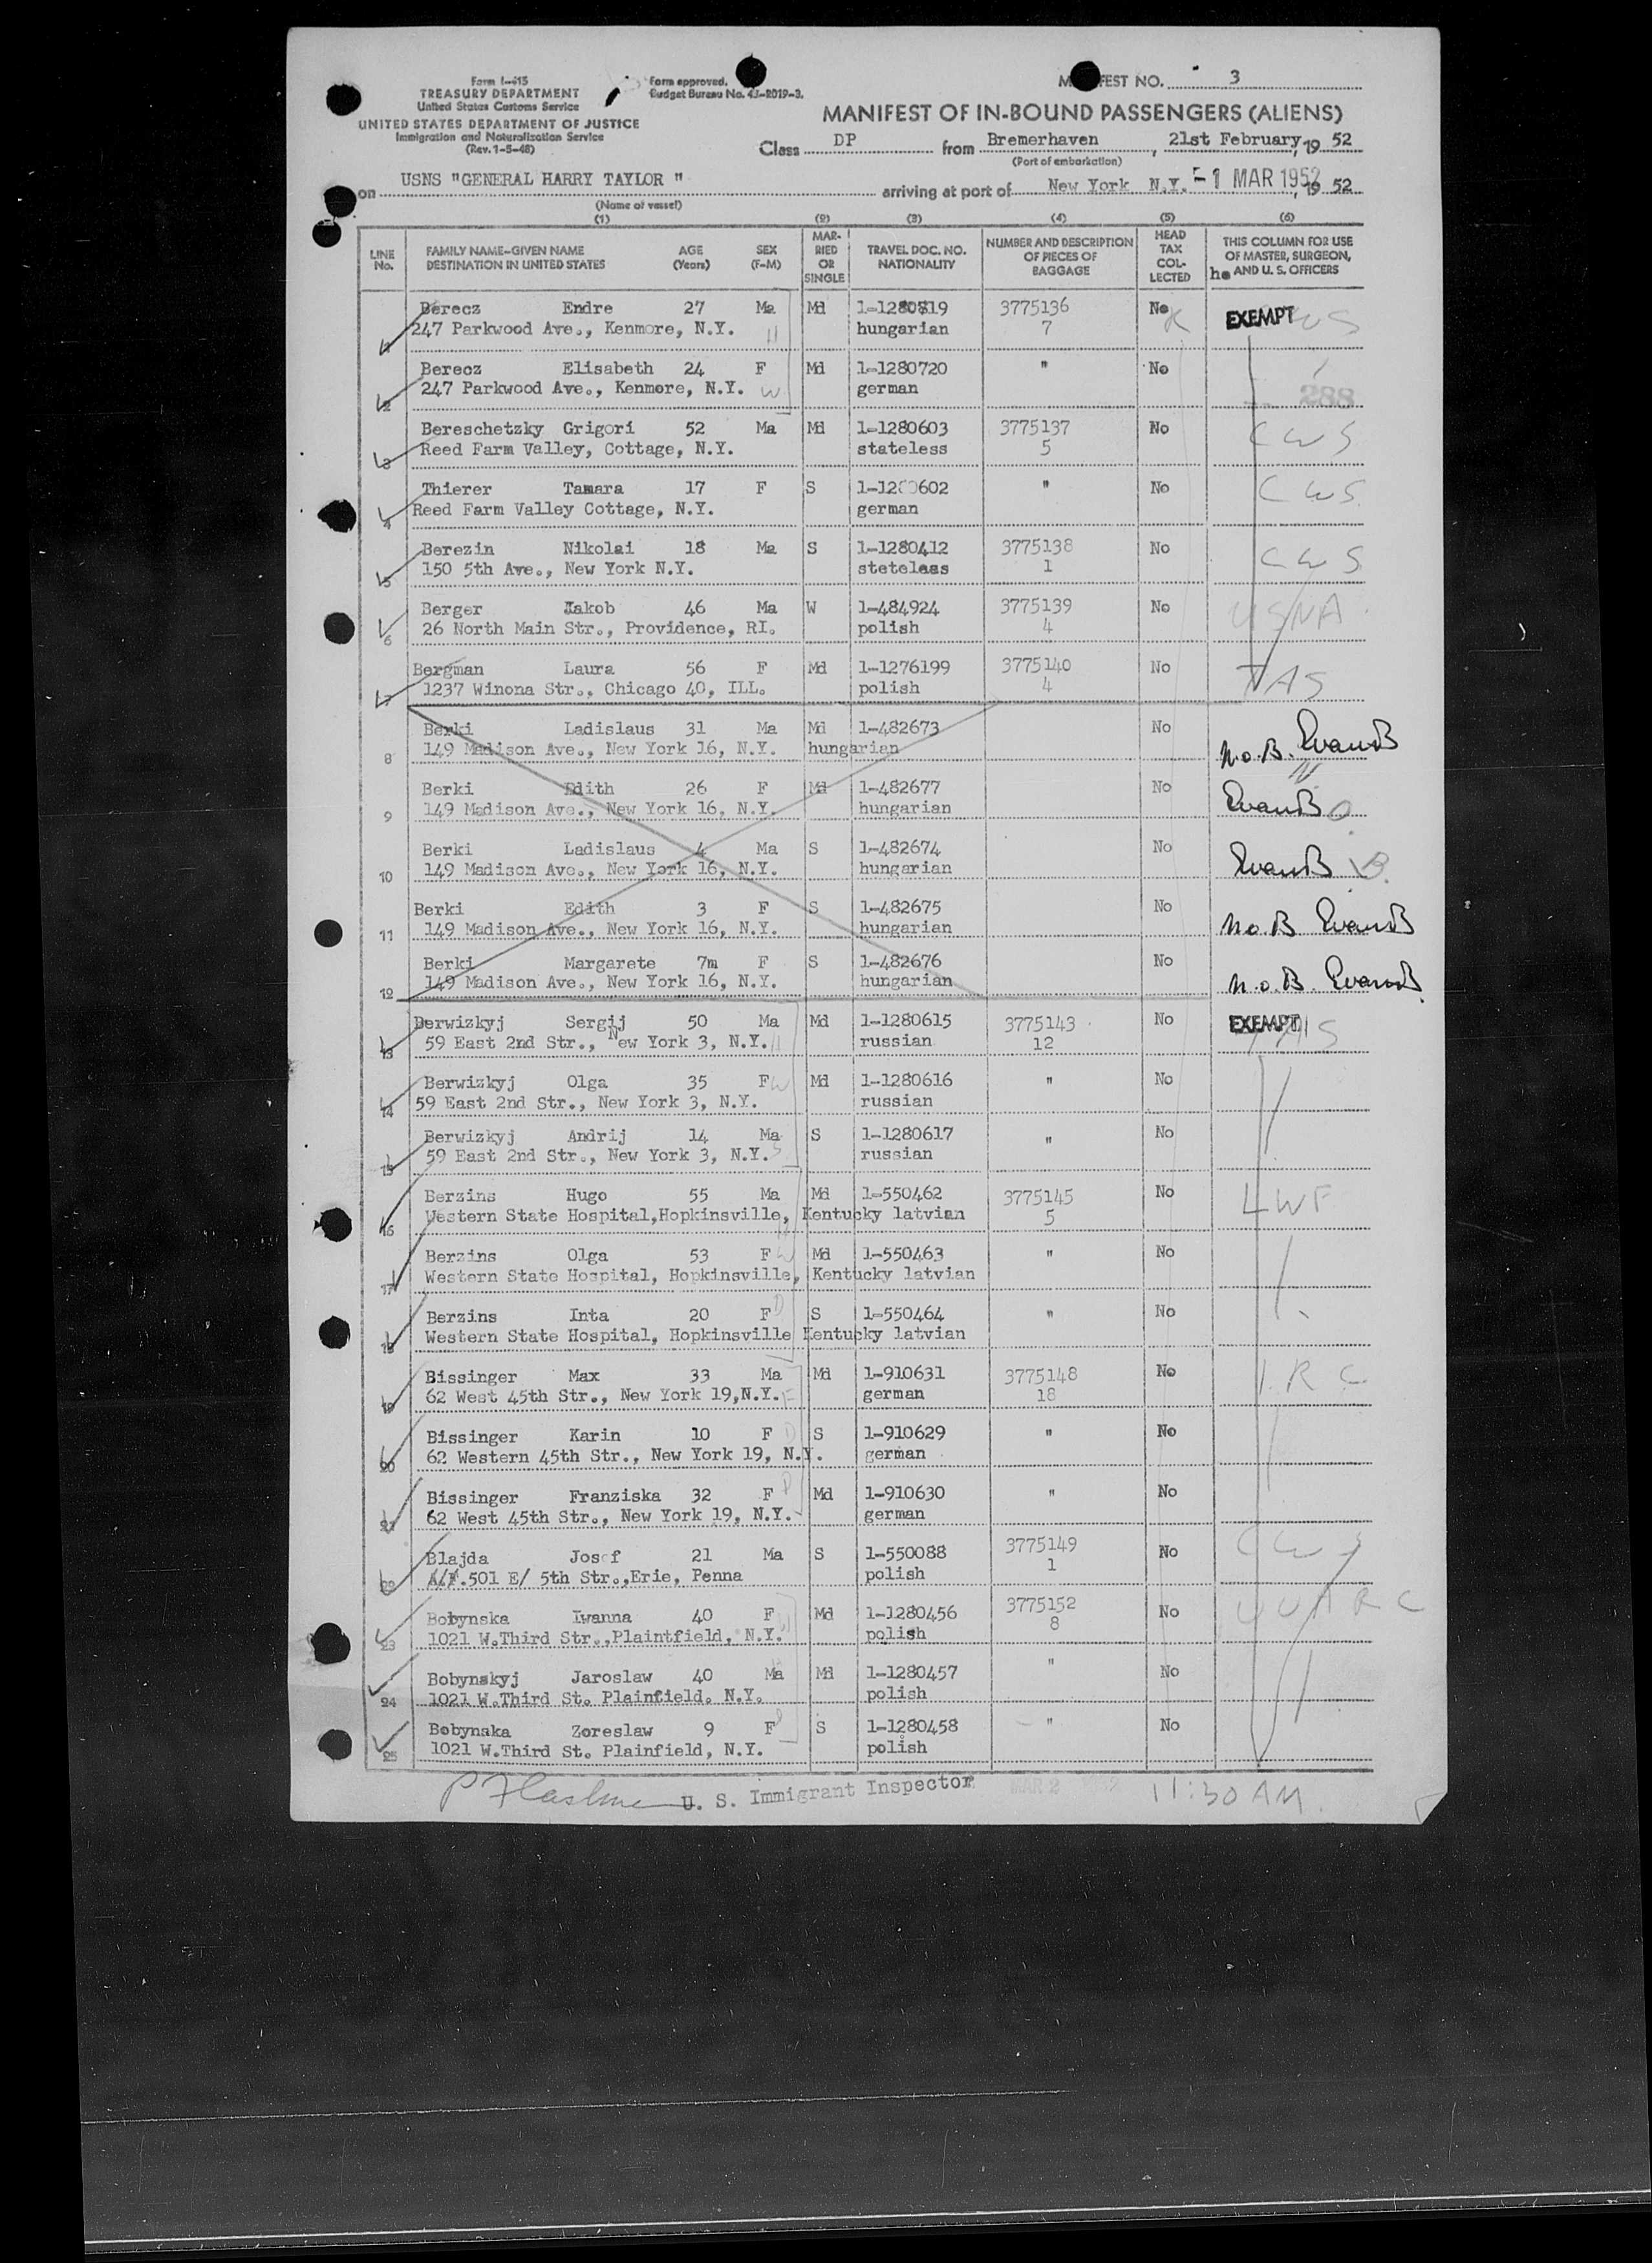 Form I-415
TREASURY DEPARTMENT
United States Customs Service
UNITED STATES DEPARTMENT OF JUSTICE
Immigration and Naturalization Service
(Rev. 1-5-48)
Form approved.
Budget Bureau No. 43-R019-3.
MANIFEST NO. 3
MANIFEST OF IN-BOUND PASSENGERS (ALIENS)
Class DP from Bremerhaven, 21st February, 19 52
(Port of embarkation)
on USNS "GENERAL HARRY TAYLOR " arriving at port of New York N.Y. -1 MAR 1952, 19 52
(Name of vessel)
(1) (2) (3) (4) (5) (6)
LINE No. FAMILY NAME—GIVEN NAME DESTINATION IN UNITED STATES AGE (Years) SEX (F-M) MARRIED OR SINGLE TRAVEL DOC. NO. NATIONALITY NUMBER AND DESCRIPTION OF PIECES OF BAGGAGE HEAD TAX COLLECTED THIS COLUMN FOR USE OF MASTER, SURGEON, AND U. S. OFFICERS
1 Berecz Endre 27 Ma Md 1-1280819 3775136 No EXEMPT
247 Parkwood Ave., Kenmore, N.Y. hungarian 7
2 Berecz Elisabeth 24 F Md 1-1280720 " No
247 Parkwood Ave., Kenmore, N.Y. W german 288
3 Bereschetzky Grigori 52 Ma Md 1-1280603 3775137 No CWS
Reed Farm Valley, Cottage, N.Y. stateless 5
4 Thierer Tamara 17 F S 1-1280602 " No CWS
Reed Farm Valley Cottage, N.Y. german
5 Berezin Nikolai 18 Ma S 1-1280412 3775138 No CWS
150 5th Ave., New York N.Y. steteless 1
6 Berger Jakob 46 Ma W 1-484924 3775139 No USNA
26 North Main Str., Providence, RI. polish 4
7 Bergman Laura 56 F Md 1-1276199 3775140 No TAS
1237 Winona Str., Chicago 40, ILL. polish 4
8 Berki Ladislaus 31 Ma Md 1-482673 No n.o.B.
149 Madison Ave., New York 16, N.Y. hungarian
9 Berki Edith 26 F Md 1-482677 No
149 Madison Ave., New York 16, N.Y. hungarian
10 Berki Ladislaus 4 Ma S 1-482674 No
149 Madison Ave., New York 16, N.Y. hungarian
11 Berki Edith 3 F S 1-482675 No n.o.B
149 Madison Ave., New York 16, N.Y. hungarian
12 Berki Margarete 7m F S 1-482676 No n.o.B.
149 Madison Ave., New York 16, N.Y. hungarian
13 Berwizkyj Sergij 50 Ma Md 1-1280615 3775143 No EXEMPT
59 East 2nd Str., New York 3, N.Y. russian 12
14 Berwizkyj Olga 35 F W Md 1-1280616 " No
59 East 2nd Str., New York 3, N.Y. russian
15 Berwizkyj Andrij 14 Ma S 1-1280617 " No
59 East 2nd Str., New York 3, N.Y. S russian
16 Berzins Hugo 55 Ma Md 1-550462 3775145 No LWF
Western State Hospital,Hopkinsville, Kentucky latvian 5
17 Berzins Olga 53 F W Md 1-550463 " No
Western State Hospital, Hopkinsville, Kentucky latvian
18 Berzins Inta 20 F D S 1-550464 " No
Western State Hospital, Hopkinsville Kentucky latvian
19 Bissinger Max 33 Ma Md 1-910631 3775148 No IRC
62 West 45th Str., New York 19,N.Y. F german 18
20 Bissinger Karin 10 F D S 1-910629 " No
62 Western 45th Str., New York 19, N.Y. german
21 Bissinger Franziska 32 F Md 1-910630 " No
62 West 45th Str., New York 19, N.Y. german
22 Blajda Josef 21 Ma S 1-550088 3775149 No CWS
501 E/ 5th Str.,Erie, Penna polish 1
23 Bobynska Iwanna 40 F Md 1-1280456 3775152 No UUARC
1021 W.Third Str.,Plaintfield, N.Y. polish 8
24 Bobynskyj Jaroslaw 40 Ma Md 1-1280457 " No
1021 W.Third St. Plainfield. N.Y. polish
25 Bobynska Zoreslaw 9 F S 1-1280458 " No
1021 W.Third St. Plainfield, N.Y. polish
U. S. Immigrant Inspector MAR 2 1952 11:30 AM.